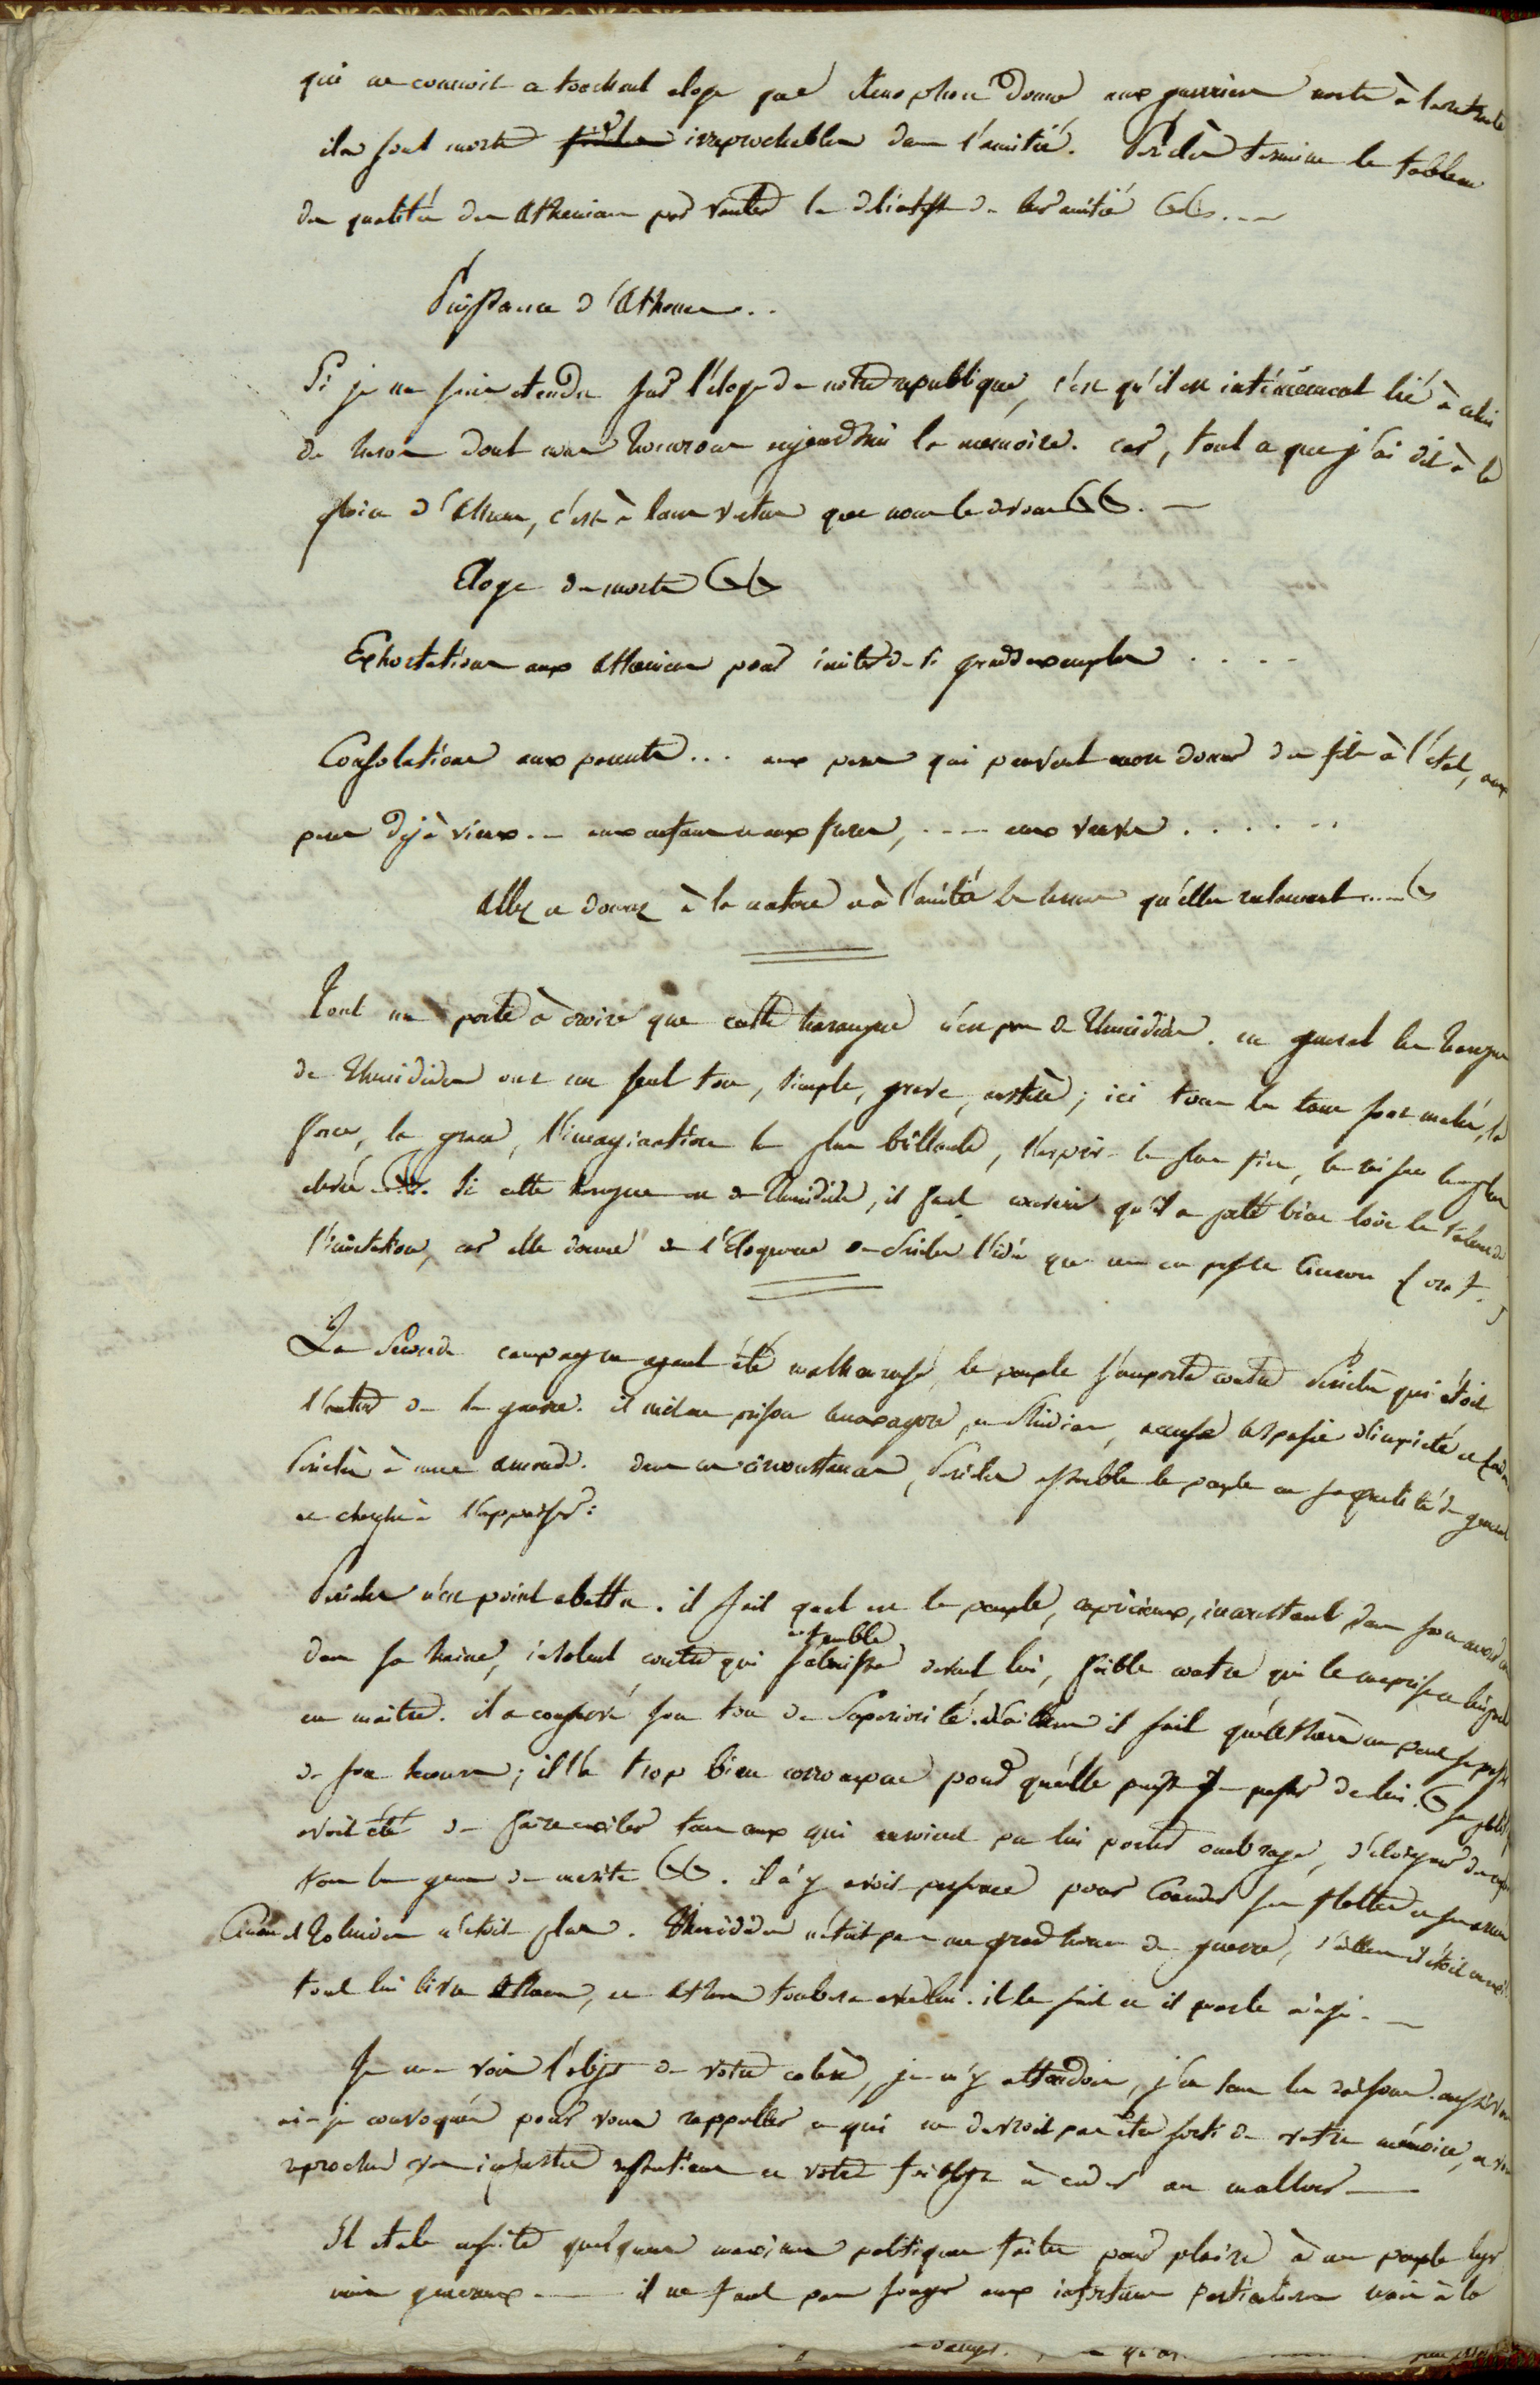 qui ne connoit ce touchant eloge que Xenophon donne aux guerriers morts à la retraite
ils sont morts irreprochables dans l'amitié. Periclès termine le tableau
des qualités des Atheniens par vanter la délicatesse de leur amitié
Puissance d'Athenes..
Si je me suis etendu sur l'éloge de notre republique, c'est qu'il est intimement lié à celui
de heros dont nous honorons aujourd'hui la memoire. car, tout ce que j'ai dit à la
gloire d'Athenes, c'est à leurs vertus que nous le devons.—
Eloge des morts
Exhortations aux Atheniens pour imiter de si grands exemples ....
Consolations aux parents... aux peres qui peuvent encore donner des fils à l'état, aux
peres déjà vieux.— aux enfans et aux freres, .--- aux veuves ......
Allez et donnez à la nature et à l'amitié les larmes qu'elles reclament.....
Tout me porte à croire que cette harangue n'est pas de Thucidides. en general les harangues
de Thucidides ont un seul ton, simple, grave, austère; ici tous les tons sont melés, la
force, la grace, l'imagination la plus brillante, l'esprit le plus fin, la raison la plus
elevée. Si cette harangue est de Thucidide, il faut convenir qu'il a porté bien loin le talent de
l'imitation, car elle donne de l'Eloquence de Pericles l'idée que nous en presente Ciceron (orat.)
La Seconde campagne ayant été malheureuse, le peuple s'emporte contre Periclès qui étoit
l'auteur de la guerre. il met en prison Anaxagore, et Phidias, accuse Aspasie d'impieté et condamne
Periclès à une amende. dans ces circonstances, Pericles assemble le peuple en sa qualité de general
et cherche à l'appaiser:
Pericles n'est point abattu. il sait quel est le peuple, capricieux, inconstant dans son amour et
et tremble
dans sa haine, insolent contre qui s'abaisse devant lui, foible contre qui le meprise et lui parle
en maitre. il a conservé son ton de Superiorité. d'ailleurs il sait qu'Athènes ne peut se passer
de son secours; il l'a trop bien corrompue pour qu'elle puisse se passer de lui. sa politique
avoit été de faire exiler tous ceux qui auroient pu lui porter ombrage, d'éloigner des
tous les gens de merite. il n'y avoit personne pour commander sa flotte et son armée
Cimon et Tolmides n'étoit plus. Thucidides n'étoit pas un grand homme de guerre, d'ailleurs il étoit
tout lui livre Athenes, et Athenes tombera avec lui. il le sait et il parle ainsi.—
Je vois l'objet de votre colère, je m'y attendois, j'en sens les raisons. aussi vous
ai-je convoqués pour vous rappeller ce qui ne devroit pas être sorti de votre mémoire, et vous
reprocher vos injustes et votre foiblesse à ceder au malheur—
Il etale ensuite quelques maximes politiques faites pour plaire à un peuple leger
mais genereux.— il ne faut pas songer aux infortunes particulieres mais à la